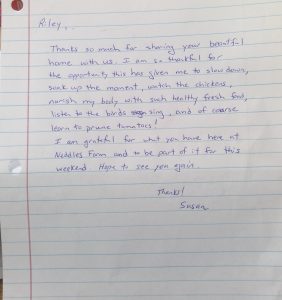 Riley,
Thanks so much for sharing your beautiful
home with us. I am so thankful for
the opportunity this has given me to slow down,
soak up the moment, watch the chickens,
norish my body with such healthy fresh food,
listen to the birds sing, and of coarse
learn to prune tomatoes!
I am grateful for what you have here at
Farm and to be part of it for this
weekend. Hope to see you again.
Thanks!
Susan